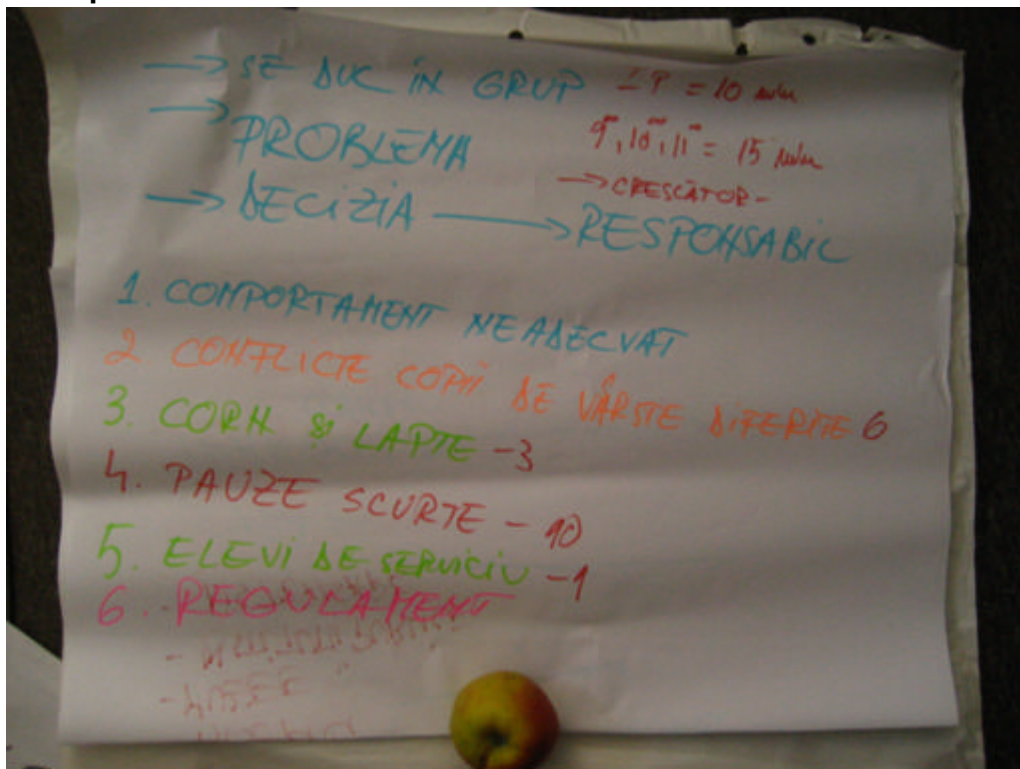 → SE DUC ÎN GRUP
= 10 min
→ PROBLEMA
9⁰⁰, 10⁰⁰, 11⁰⁰ = 15 min
→ CRESCĂTOR -
→ DECIZIA → RESPONSABIL
1. COMPORTAMENT NEADECVAT
2 CONFLICTE COPII DE VÂRSTE DIFERITE 6
3. CORN ȘI LAPTE - 3
4. PAUZE SCURTE - 10
5. ELEVI DE SERVICIU - 1
6. REGULAMENT